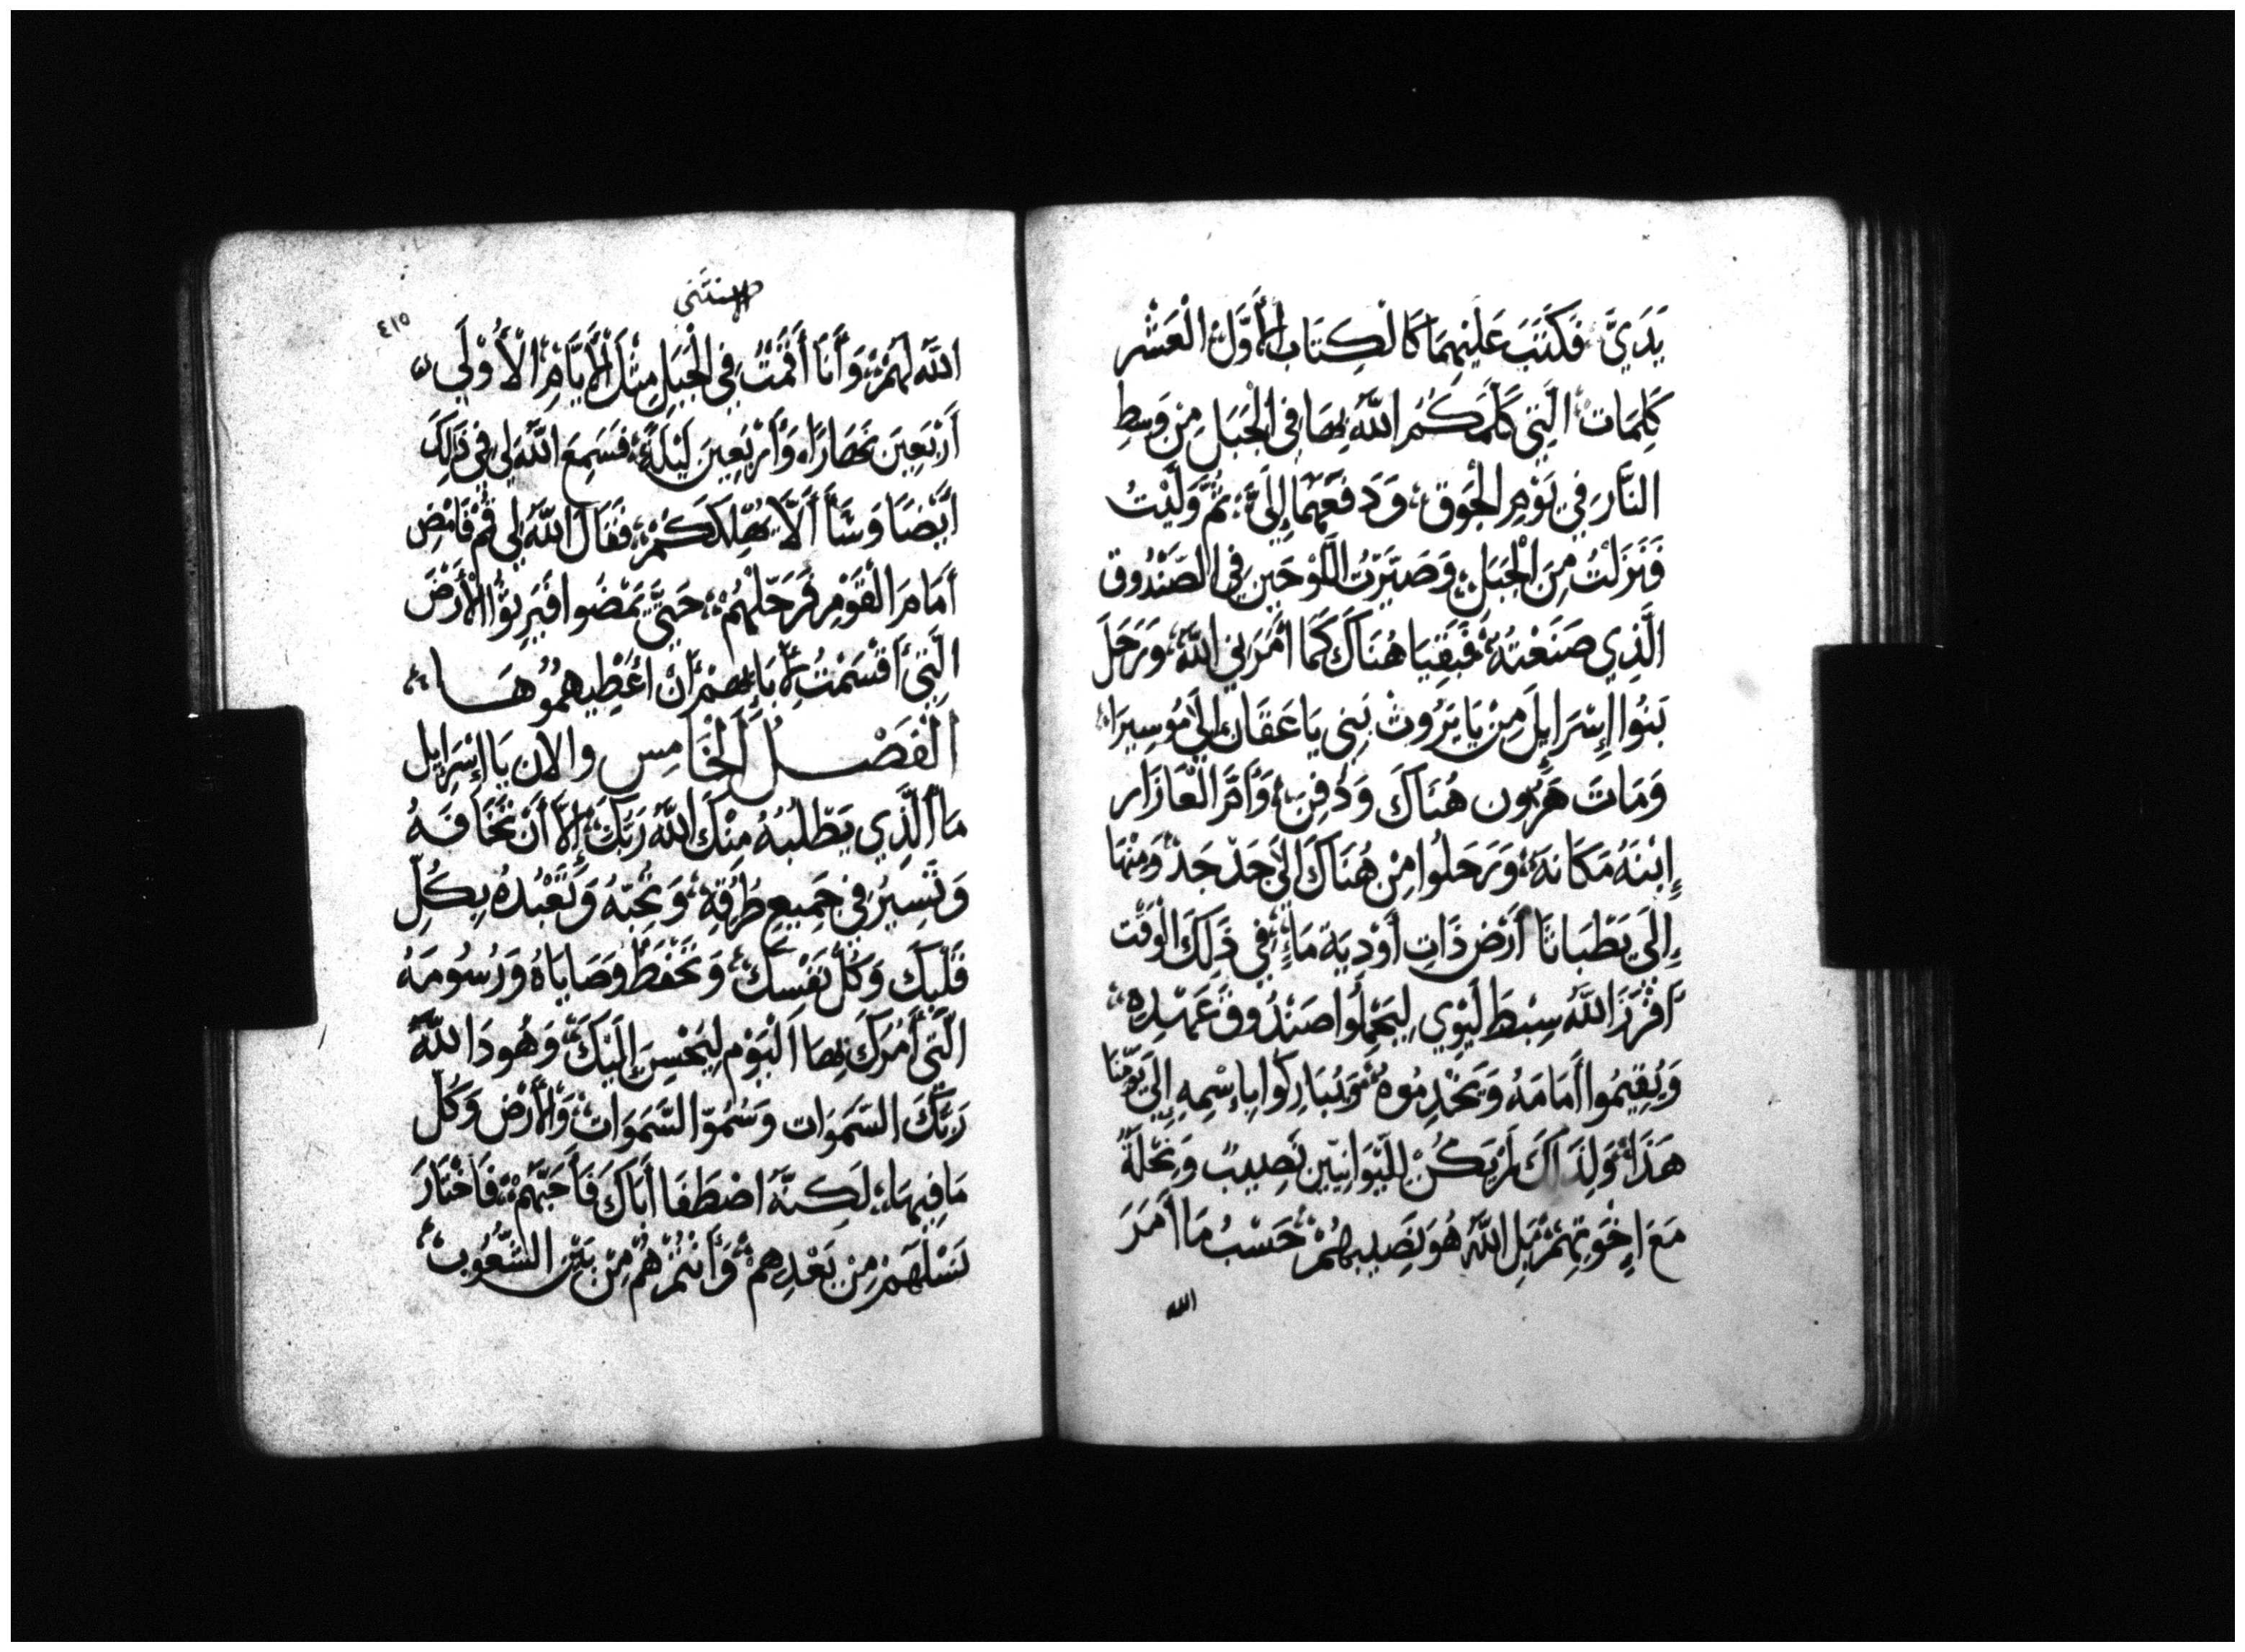 يَدَيَّ، فَكَتَبَ عَلَيْهِمَا كَالْكِتَابِ الْأَوَّلِ الْعَشْر
كَلِمَاتٍ الَّتِي كَلَّمَكُمُ اللَّهُ بِهَا فِي الْجَبَلِ مِنْ وَسِطِ
النَّارِ فِي يَوْمِ الْجَوْقِ، وَدَفَعَهُمَا إِلَيَّ، ثُمَّ وَلَّيْتُ
فَنَزَلْتُ مِنَ الْجَبَلِ، وَصَيَّرْتُ اللَّوْحَيْنِ فِي الصَّنْدُوق
الَّذِي صَنَعْتُهُ، فَبَقِيَا هُنَاكَ كَمَا أَمَرَنِي اللَّهُ، وَرَحَلَ
بَنُوا إِسْرَايِلَ مِنْ يَا بَرُوثْ بَنِي يَاعَقَان إِلَى مُوسِيرَا،
وَمَاتَ هَرُون هُنَاكَ وَدُفِنَ، وَأَمَّ الْعَازَار
إِبْنَهُ مَكَانَهُ، وَرَحَلُوا مِنْ هُنَاكَ إِلَى جَدْجَدْ، وَمِنْهَا
إِلَى يَطْبَاثَا أَرْض ذَاتِ أَوْدِيَة مَاءٍ، فِي ذَلِكَ الْوَقْت
أَفْرَزَ اللَّهُ سِبْطَ لِيْوِي لِيَحْمِلُوا صَنْدُوقَ عَهْدِهِ،
وَيُقِيمُوا أَمَامَهُ وَيَخْدِمُوهُ، وَيُبَارِكُوا بِاسْمِهِ إِلَى يَوْمِنَا
هَذَا، وَلِذَلِكَ لَمْ يَكُنْ لِلَّيْوَانِيِّينَ نَصِيبٌ وَنِحْلَةٌ
مَعَ إِخْوَتِهِمْ، بَلِ اللَّهُ هُوَ نَصِيبِهِمْ، حَسْبُ مَا أَمَرَ
الله
الاستثنى
٤١٥
اللَّهُ لَهُمْ، وَأَنَا أَقَمْتُ فِي الْجَبَلِ مِثْلَ الْأَيَّامِ الْأُوْلَي
أَرْبَعِينَ نَهَارًا، وَأَرْبَعِينَ لَيْلَةً، فَسَمِعَ اللَّهُ لِي فِي ذَلِكَ
أَيْضًا وَشَاَ أَلَّا يُهْلِكَكُمْ، فَقَالَ اللَّهُ لِي قُمْ فَامْضِ
أَمَامَ الْقَوْمِ فَرَحِّلْهُمْ، حَتَّى يَمْضُوا فَيَرِثُوا الْأَرْضَ
الَّتِي أَقْسَمْتُ لِآبَائِهِمْ أَنْ أُعْطِيهِمُوهَا،
الْفَصْلُ الْخَامِس وَالان يَا إِسْرَايِل
مَا الَّذِي يَطْلُبُهُ مِنْكَ اللَّهُ رَبُّكَ، إِلَّا أَنْ تَخَافَهُ
وَتَسِيرُ فِي جَمِيعِ طُرُقِهِ، وَتُحِبّهُ وَتَعْبُدهُ بِكُلِّ
قَلْبِكَ وَكُلِّ نَفْسِكَ، وَتَحْفَظُ وَصَايَاهُ وَرُسُومَهُ
الَّتِي أَمُرَكَ بِهَا الْيَوْم لِيَحْسِنَ إِلَيْكَ، وَهُوذَا اللَّهِ
رَبِّكَ السَّمَوَات وَسُمُوّ السَّمَوَات، وَالْأَرْض وَكُلّ
مَا فِيهَا، لَكِنَّهُ اصْطَفَا أَبَاكَ فَأَحَبَّهُمْ، فَاخْتَارَ
نَسْلَهُمْ مِنْ بَعْدِهِم، وَأَنْتُمْ هُمْ مِنْ بَيْنِ الشُّعُوب،